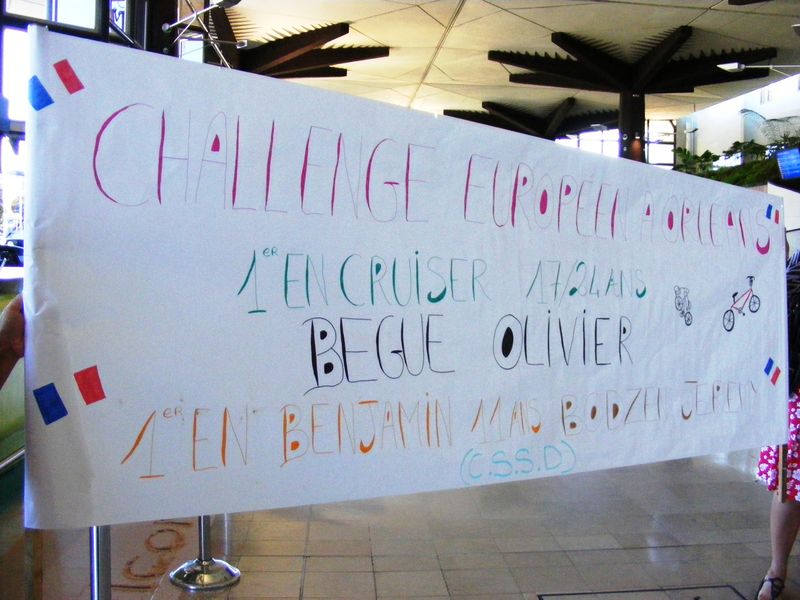 CHALLENGE EUROPÉEN À ORLEANS
1ER EN CRUISER 17/24 ANS
BEGUE OLIVIER
1ER EN BENJAMIN 11 ANS BODZEN JEREMY
(C.S.S.D)